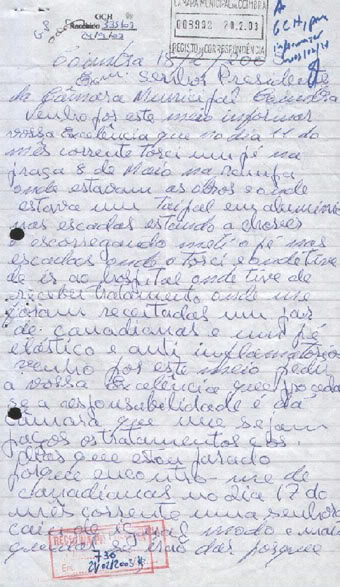 GCH
CÂMARA MUNICIPAL DE COIMBRA
008992 20.2.03
REGISTO DE CORRESPONDÊNCIA
Coimbra
Senhor Presidente
da Câmara Municipal Coimbra
Venho por este meio informar
vossa Excelência que no dia 11 do
mês corrente torci um pé na
praça 8 de Maio na rampa
onde estavam as obras e onde
estava um taipal em aluminio
nas escadas estando a chover
e escorregando meti o pé nas
escadas onde o torci e onde tive
de ir ao hospital onde tive de
receber tratamento onde me
foram receitadas um par
de canadianas e um pé
elástico e anti inflamatório
venho por este meio pedir
a vossa Excelência que proceda
se a responsabilidade é da
câmara que me sejam
pagos os tratamentos e os
dias que estou parado
porque encontro-me de
canadianas no dia 17 do
mês corrente uma senhora
caiu de igual modo e mais
das porque
736